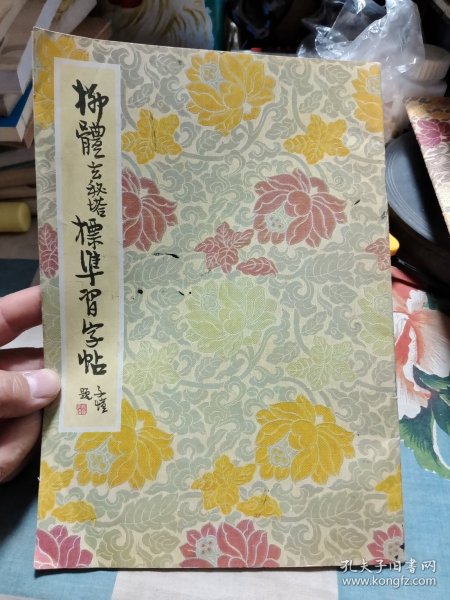 柳體玄秘塔標準習字帖
子愷題
孔夫子旧书网
www.kongfz.com